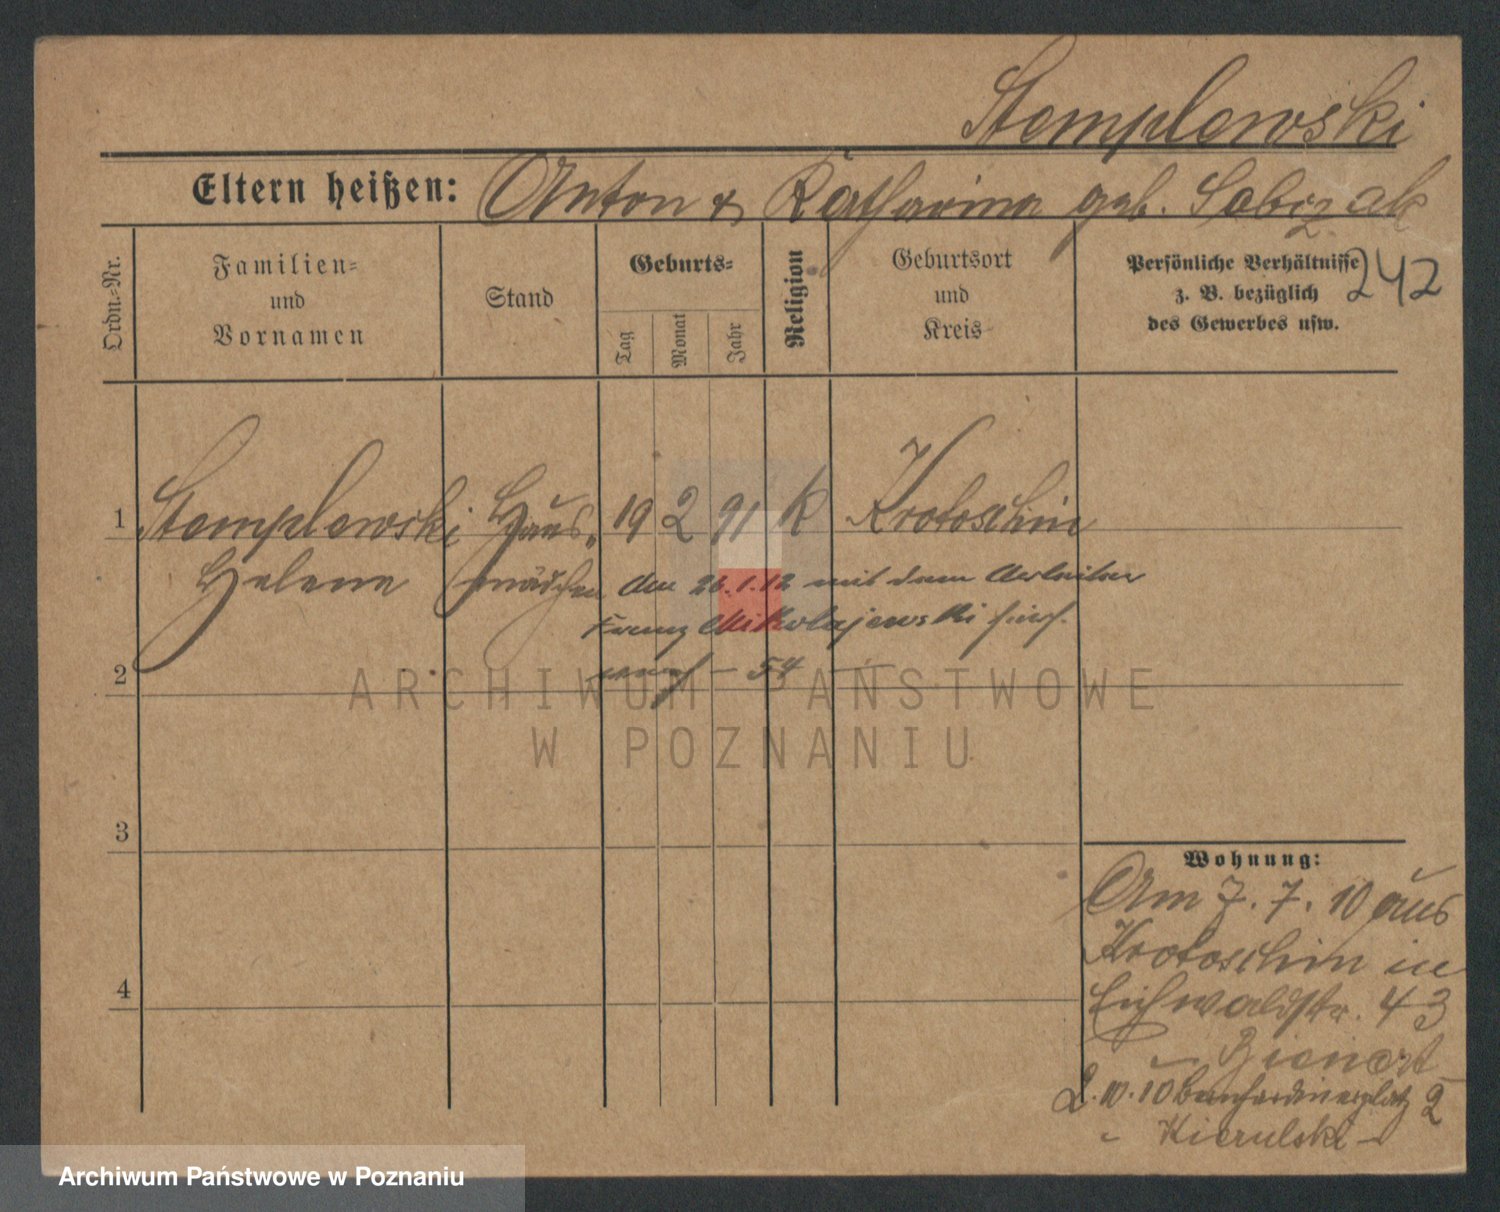 Stemplewski
Eltern heißen: Anton & Katharina geb. Sobczak
Ordn.-Nr.
Familien-
und
Vornamen
Stand
Geburts-
Tag
Monat
Jahr
Religion
Geburtsort
und
Kreis
Persönliche Verhältnisse
z. B. bezüglich
des Gewerbes usw.
242
1 Stemplewski Haus- 19 2 91 k Krotoschin
Helene mädchen
am 26.1.12 mit dem Arbeiter
Franz Mikolajewski hier
54
2
ARCHIWUM PAŃSTWOWE
W POZNANIU
3
4
Wohnung:
Am 7.7.10 aus
Krotoschin in
Eichwaldstr. 43
2.10.10 Bernhardinerplatz 2
Archiwum Państwowe w Poznaniu